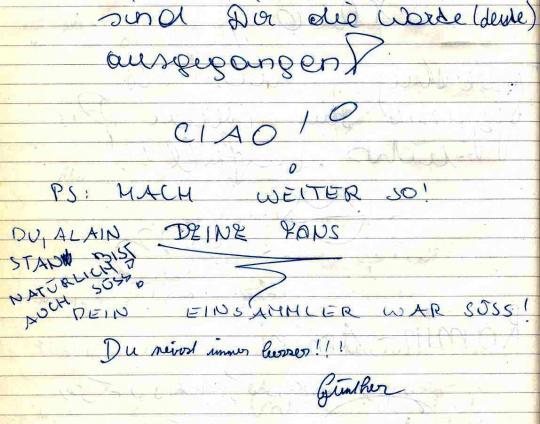 sind Dir die Worte (deute)
ausgegangen?
CIAO!
PS: MACH WEITER SO!
DEINE FANS
DU, ALAIN
STAN BIST
NATÜRLICH
AUCH SÜSS!
DEIN EINSAMMLER WAR SÜSS!
Du wirst immer besser!!!
Günther